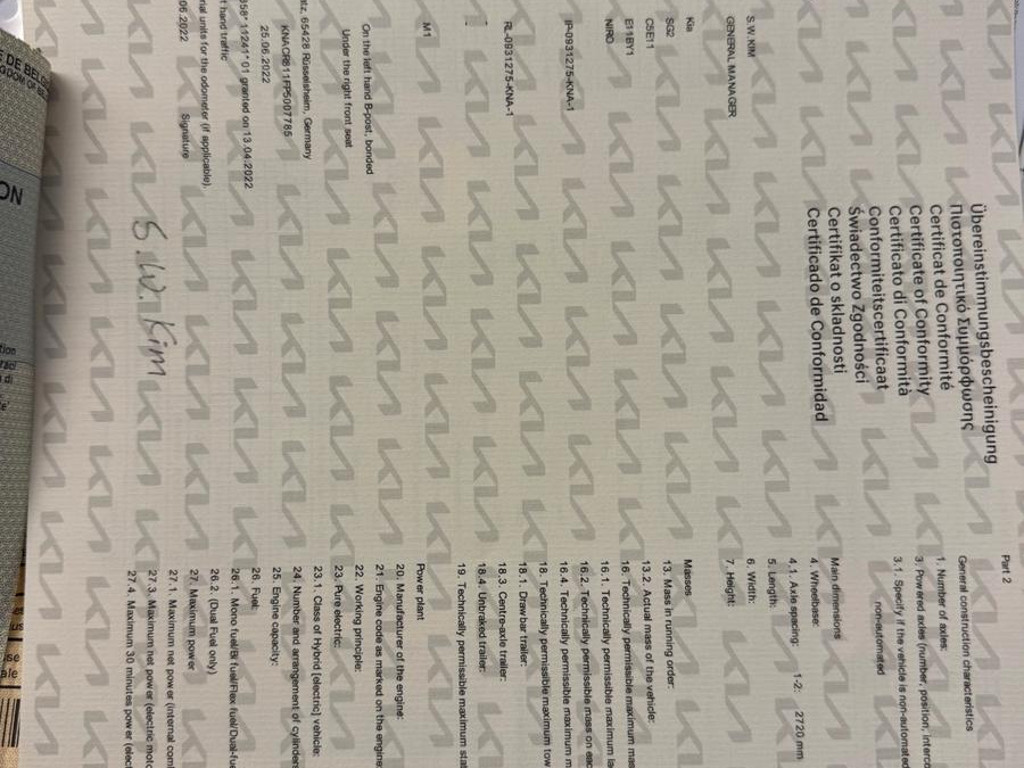 Übereinstimmungsbescheinigung
Πιστοποιητικό Συμμόρφωσης
Certificat de Conformité
Certificate of Conformity
Certificato di Conformità
Conformiteitscertificaat
Świadectwo Zgodności
Certifikat o skladnosti
Certificado de Conformidad
S.W. KIM
GENERAL MANAGER
Kia
SG2
C5E11
E11BY1
NIRO
IP-0931275-KNA-1
RL-0931275-KNA-1
-
M1
On the left hand B-post, bonded
Under the right front seat
65428 Rüsselsheim, Germany
KNACR811FP5007785
25.06.2022
858* 11241* 01 granted on 13.04.2022
hand traffic
units for the odometer (if applicable).
06.2022 Signature
S.W. Kim
Part 2
General construction characteristics
1. Number of axles:
3. Powered axles (number, position,
3.1. Specify if the vehicle is non-automated
non-automated
Main dimensions
4. Wheelbase:
4.1. Axle spacing: 1-2: 2720 mm
5. Length:
6. Width:
7. Height:
Masses
13. Mass in running order:
13.2. Actual mass of the vehicle:
16. Technically permissible maximum
16.1. Technically permissible maximum
16.2. Technically permissible mass on
16.4. Technically permissible maximum
18. Technically permissible maximum
18.1. Drawbar trailer:
18.3. Centre-axle trailer:
18.4. Unbraked trailer:
19. Technically permissible maximum
Power plant
20. Manufacturer of the engine:
21. Engine code as marked on the engine
22. Working principle:
23. Pure electric:
23.1. Class of hybrid [electric] vehicle:
24. Number and arrangement of
25. Engine capacity:
26. Fuel:
26.1. Mono fuel/Bi fuel/Flex fuel/Dual-
26.2. (Dual Fuel only)
27. Maximum power
27.1. Maximum net power (internal
27.3. Maximum net power (electric
27.4. Maximum 30 minutes power